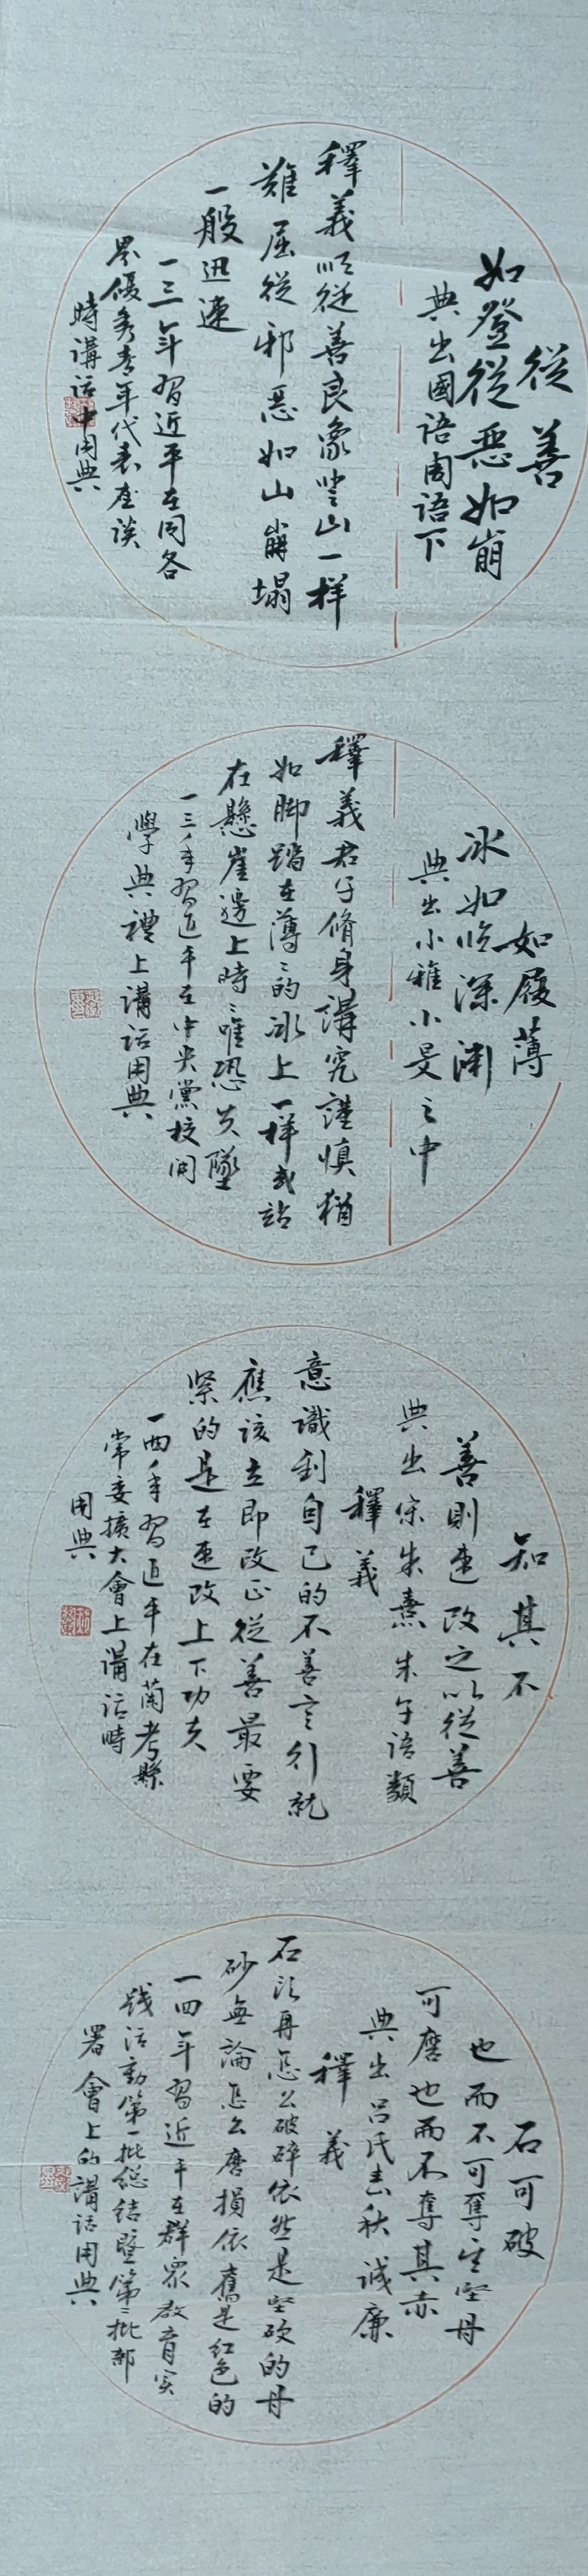 從善
如登從惡如崩
典出國語周語下
釋義順從善良象登山一样
難屈從邪惡如山崩塌
一般迅速
一三年習近平在同各
界優秀青年代表座谈
時講话中用典
如履薄
冰如临深渊
典出小雅小旻之中
釋義君子脩身講究謹慎猶
如脚踏在薄薄的冰上一样或站
在懸崖邊上時時唯恐失墜
一三年習近平在中央黨校開
學典禮上講话用典
知其不
善則速改之以從善
典出宋朱熹朱子语類
釋義
意識到自己的不善言行就
應该立即改正從善最要
紧的是在速改上下功夫
一四年習近平在蘭考縣
常委擴大會上講话時
用典
石可破
也而不可奪堅丹
可磨也而不奪其赤
典出吕氏春秋诚廉
釋義
石头再怎么破碎依然是坚硬的丹
砂無論怎么磨損依舊是红色的
一四年習近平在群眾教育实
践活動第一批總结暨第二批部
署會上的講话用典